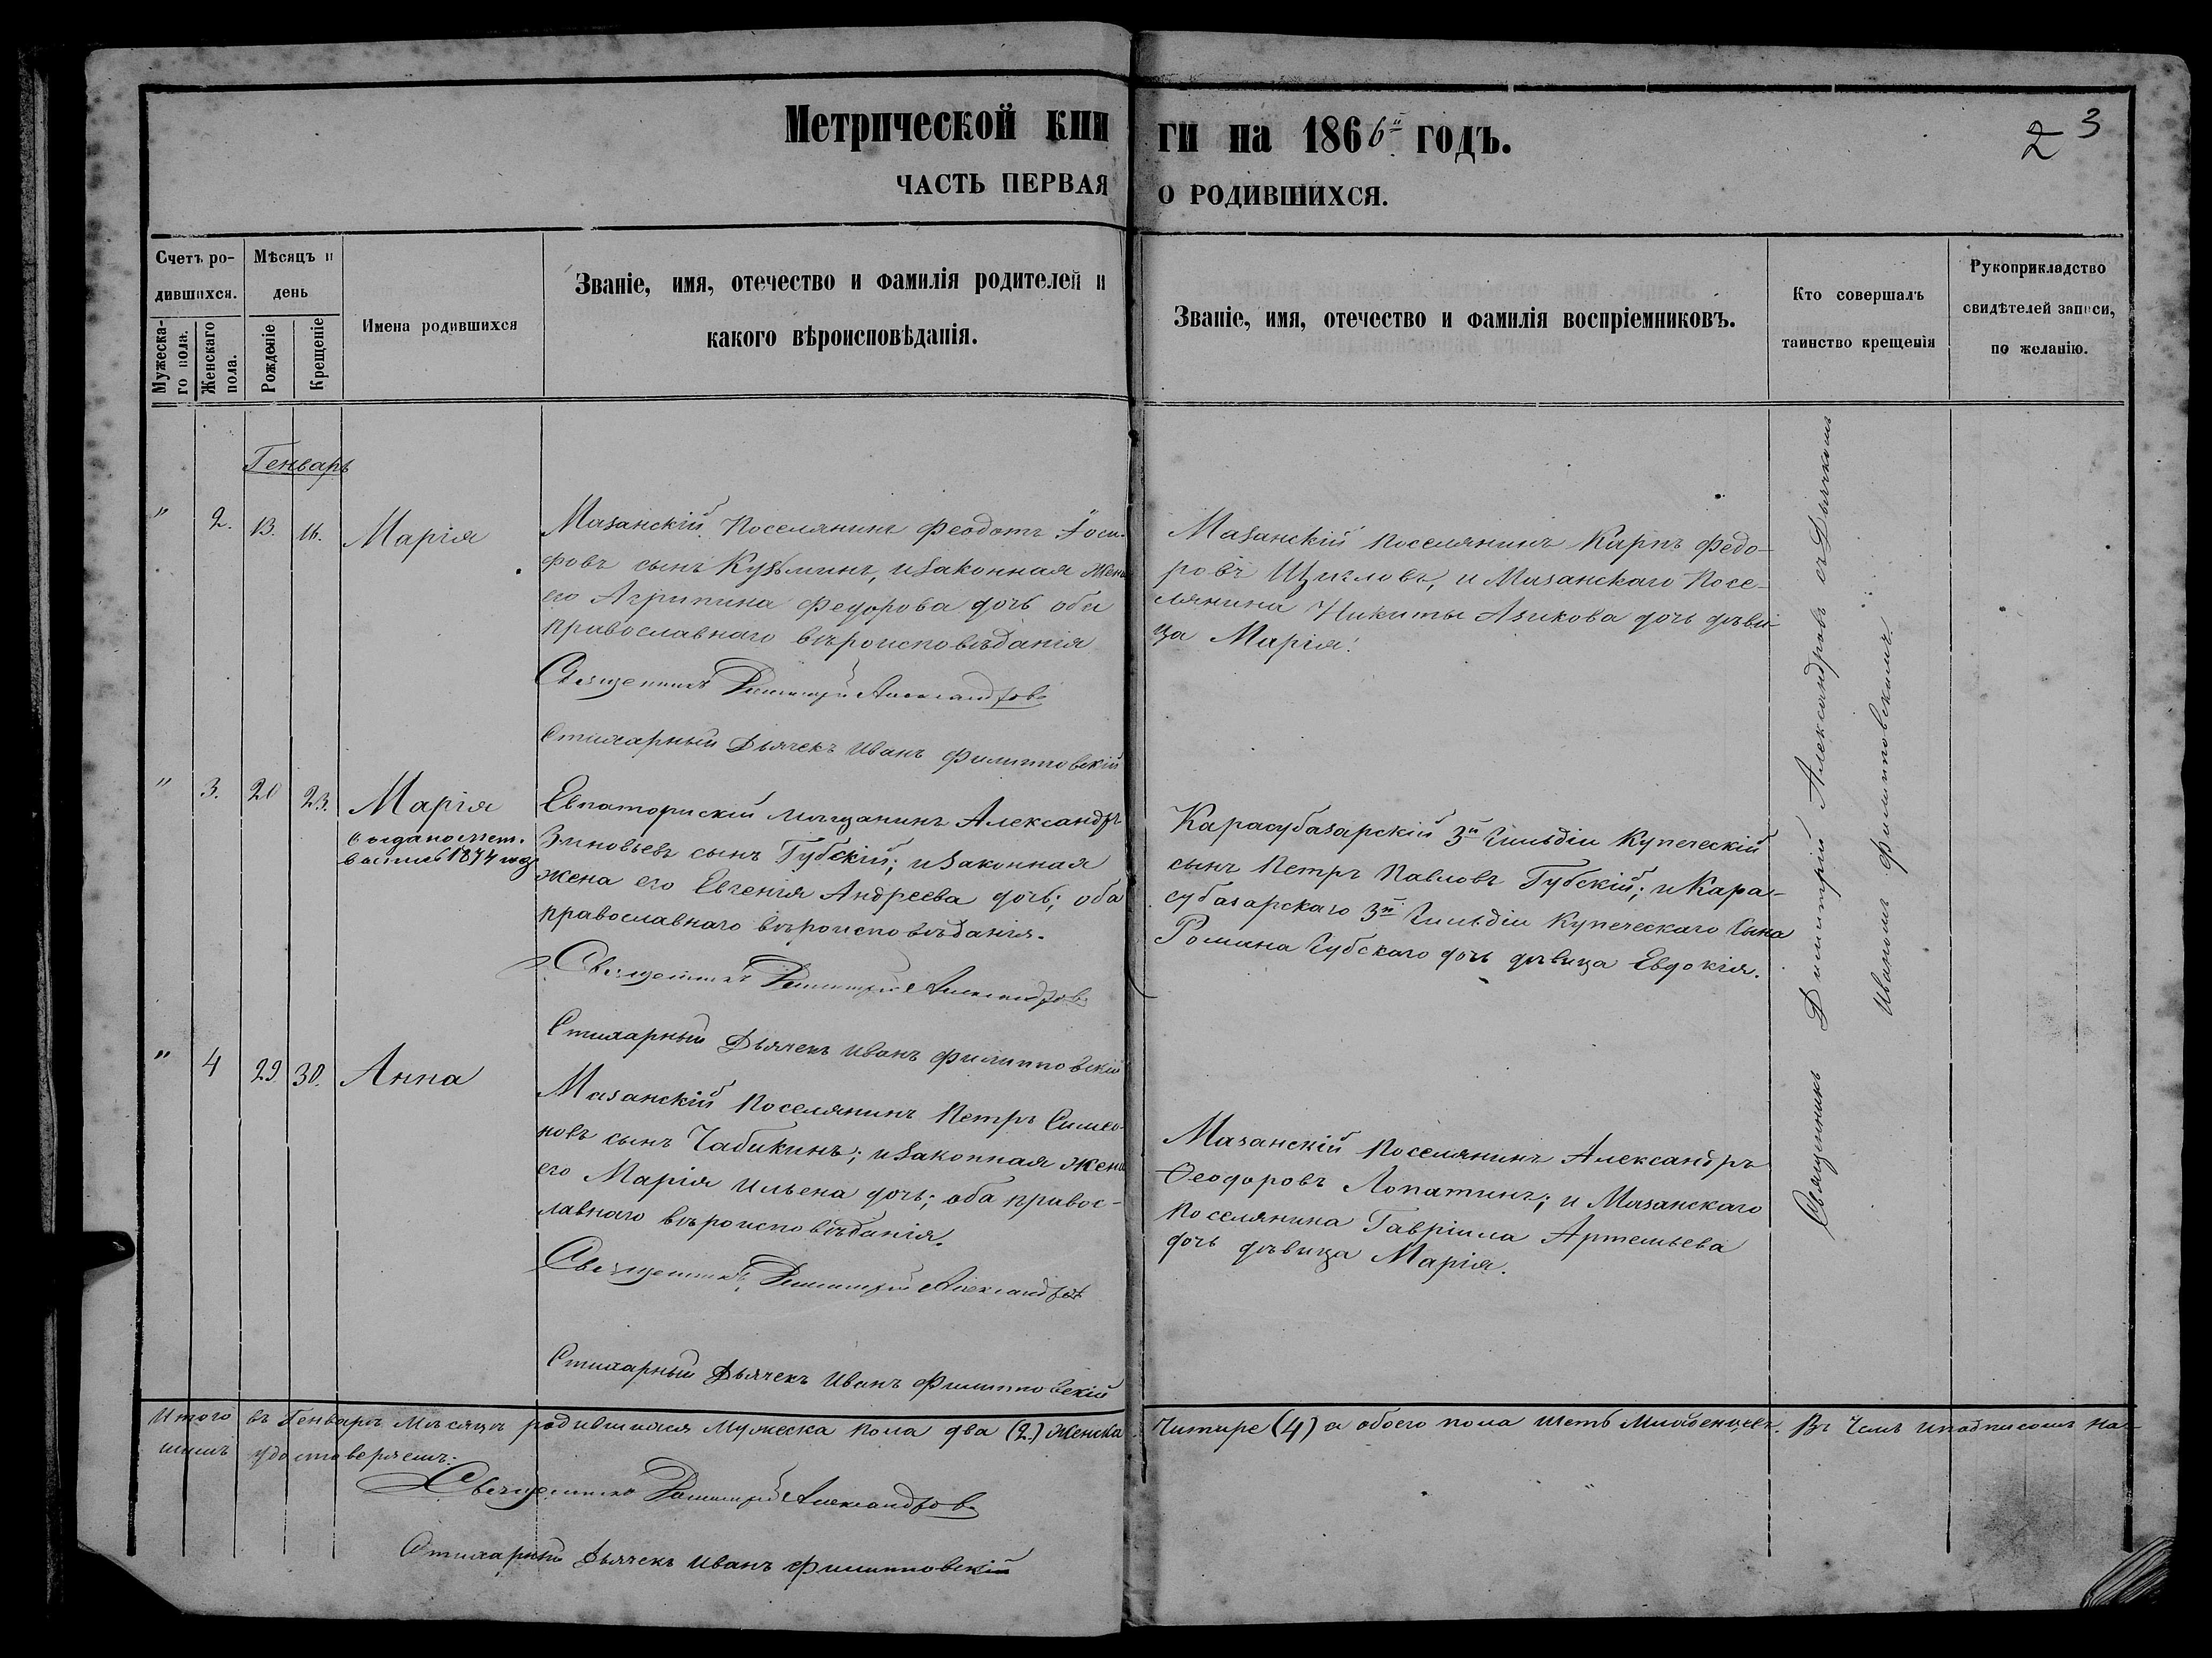 Метрической кни
ги на 1866й годъ.
2 3
ЧАСТЬ ПЕРВАЯ
О РОДИВШИХСЯ.
Счетъ ро-
дившихся.
Мужеска-
го пола.
Женскаго
пола.
Мѣсяцъ и
день
Рожденіе
Крещеніе
Имена родившихся
Званіе, имя, отечество и фамилія родителей и
какого вѣроисповѣданія.
Званіе, имя, отечество и фамилія воспріемниковъ.
Кто совершалъ
таинство крещенія
Рукоприкладство
свидѣтелей записи,
по желанію.
Генварь
" 2. 13. 16. Марія
Мазанскій Поселянинъ Феодотъ Іоси-
фовъ сынъ Кузьминъ, и законная жена
его Агрипина Федорова дочь оба
православнаго вѣроисповѣданія
Священникъ Димитрій Александровъ
Стихарный Дьячекъ Иванъ Филипповскій
Мазанскій поселянинъ Карпъ Федо-
ровъ Щигловъ, и Мазанскаго Посе-
лянина Никиты Азикова дочь дѣви-
ца Марія.
" 3. 20 23. Марія
выдано мет.
1874 года
Евпаторискій мѣщанинъ Александръ
Зиновьевъ сынъ Губскій; и законная
жена его Евгенія Андреева дочь; оба
православнаго вѣроисповѣданія.
Священникъ Димитрій Александровъ
Стихарный Дьячекъ Иванъ Филипповскій
Карасубазарскій 3й Гильдіи Купеческій
сынъ Петръ Павловъ Губскій; и Кара-
субазарскаго 3й Гильдіи Купеческаго Сына
Романа Губскаго дочь дѣвица Евдокія.
" 4 29. 30. Анна
Мазанскій Поселянинъ Петръ Симео-
новъ сынъ Чабикинъ; и законная жена
его Марія Ильена дочь; оба правос-
лавнаго вѣроисповѣданія.
Священникъ Димитрій Александровъ
Стихарный Дьячекъ Иванъ Филипповскій
Мазанскій Поселянинъ Александръ
Ѳеодоровъ Лопатинъ; и Мазанскаго
Поселянина Гавріила Артемьева
дочь дѣвица Марія.
Священникъ Димитрій Александровъ съ Дьячкомъ
Иваномъ Филипповскимъ.
Итого въ Генварѣ мѣсяцѣ родившихся Мужеска пола два (2.) Женска
Читире (4) а обоего пола шеть Младенцевъ. Въ чемъ и подписомъ на-
шимъ удостоверяемъ:
Священникъ Димитрій Александровъ
Стихарный Дьячекъ Иванъ Филипповскій